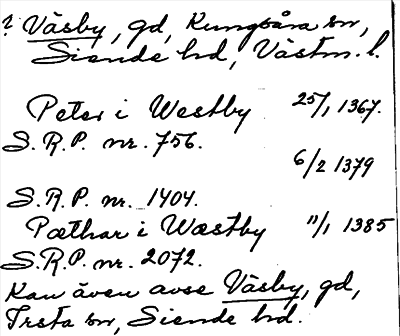 ? Väsby, gd, Kungsåra sn,
Siende hd, Västm. l.
Peter i Westby 25/1 1367.
S.R.P. nr. 756.
6/2 1379
S.R.P. nr. 1404.
Pæthar i Wæstby 11/1 1385
S.R.P. nr. 2072.
Kan även avse Väsby, gd,
Irsta sn, Siende hd.